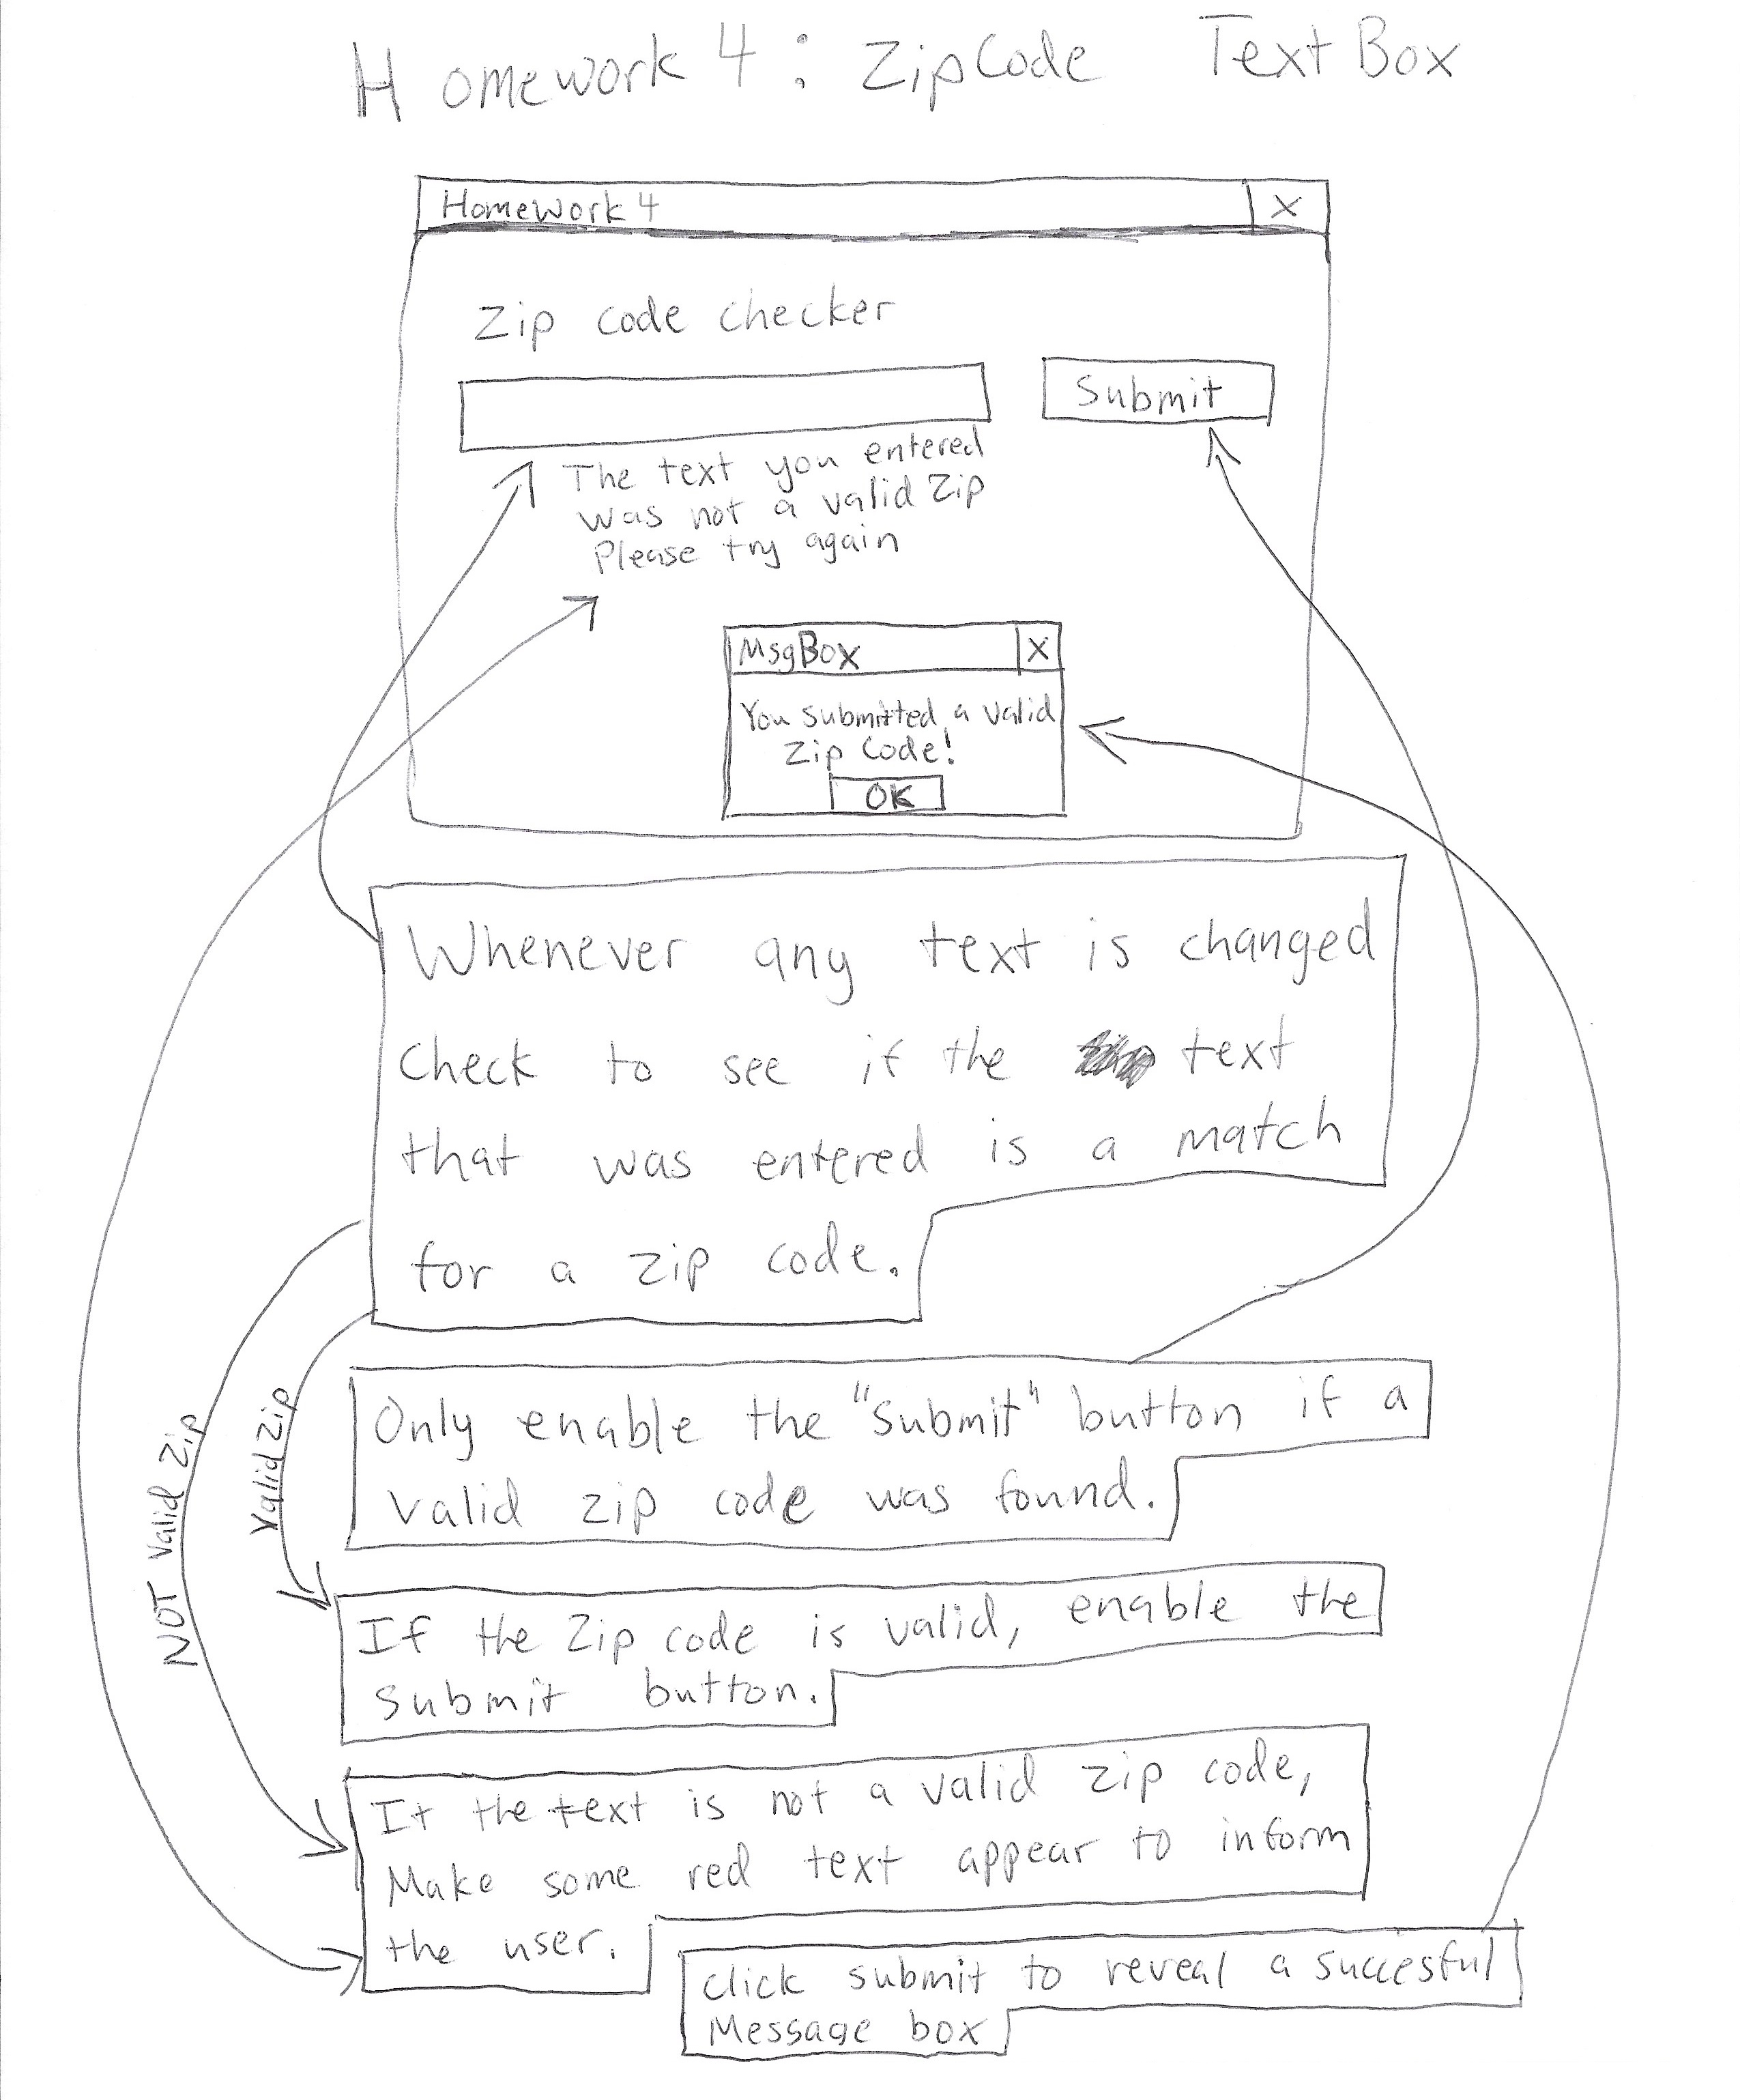 Homework 4: ZipCode Text Box
HomeWork 4 X
Zip code checker
Submit
The text you entered
was not a valid Zip
Please try again
MsgBox X
You submitted a valid
Zip Code!
OK
Whenever any text is changed
Check to see if the text
that was entered is a match
for a zip code.
Only enable the "Submit" button if a
valid zip code was found.
NOT Valid Zip
Valid Zip
If the Zip code is valid, enable the
submit button.
If the text is not a valid zip code,
Make some red text appear to inform
the user.
Click submit to reveal a succesful
Message box